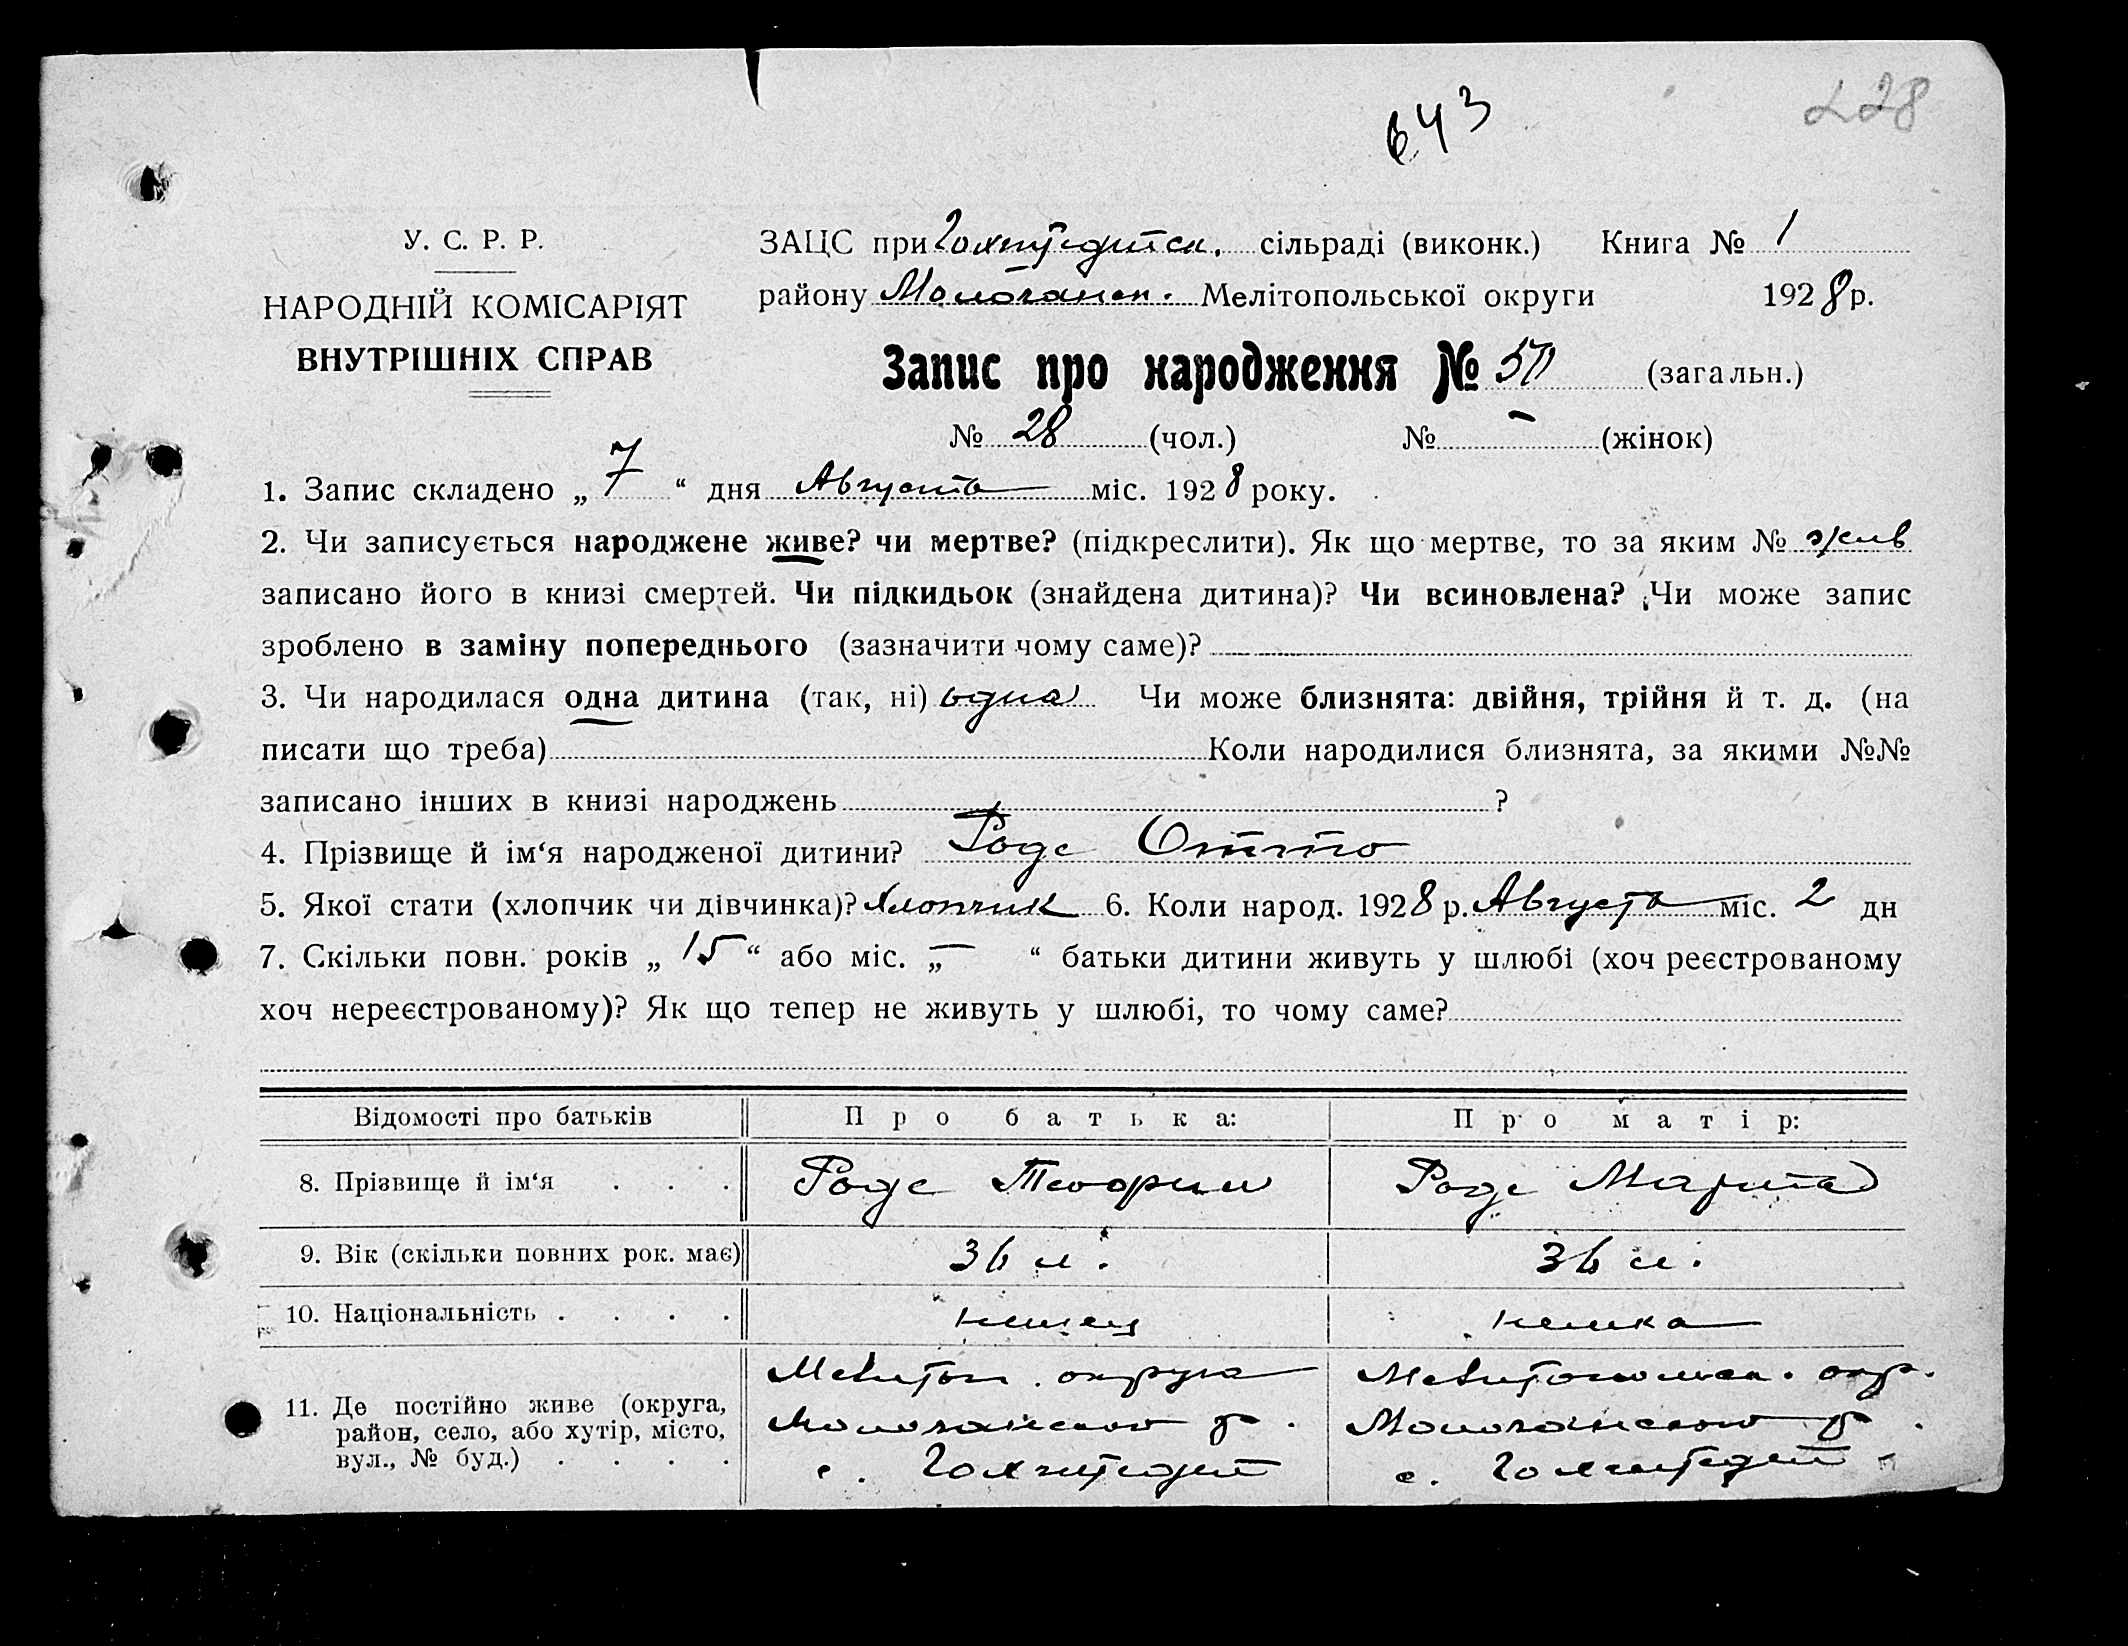 643
228
У. С. Р. Р.
НАРОДНІЙ КОМІСАРІЯТ
ВНУТРІШНІХ СПРАВ
ЗАЦС при сільраді (виконк.) Книга № 1
району Молочанск. Мелітопольської округи 1928 р.
Запис про народження № (загальн.)
№ 28 (чол.) № – (жінок)
1. Запис складено „ 7 “ дня Августа міс. 1928 року.
2. Чи записується народжене живе? чи мертве? (підкреслити). Як що мертве, то за яким № жив
записано його в книзі смертей. Чи підкидьок (знайдена дитина)? Чи всиновлена? Чи може запис
зроблено в заміну попереднього (зазначити чому саме)?
3. Чи народилася одна дитина (так, ні) одна Чи може близнята: двійня, трійня й т. д. (на
писати що треба) Коли народилися близнята, за якими №№
записано інших в книзі народжень ?
4. Прізвище й ім‘я народженої дитини? Роде Отто
5. Якої стати (хлопчик чи дівчинка)? Хлопчик 6. Коли народ. 1928 р. Августа міс. 2 дн
7. Скільки повн. років „ 15 “ або міс. „ – “ батьки дитини живуть у шлюбі (хоч реєстрованому
хоч нереєстрованому)? Як що тепер не живуть у шлюбі, то чому саме?
Відомості про батьків Про батька: Про матір:
8. Прізвище й ім‘я . . . Роде Роде
9. Вік (скільки повних рок. має) 36 л. 36 л.
10. Національність . . . . немец немка
11. Де постійно живе (округа,
район, село, або хутір, місто,
вул., № буд.) . . . .
Мелитоп. округа
Молочанского р.
с. Гохштедт
Мелитопольск. окр.
Молочанского р.
с. Гохштедт